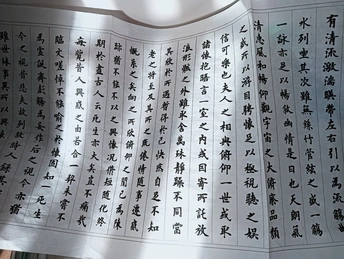 有清流激湍暎帶左右引以為流觴曲
水列坐其次雖無絲竹管弦之盛一觴
一詠亦足以暢敘幽情是日也天朗氣
清惠風和暢仰觀宇宙之大俯察品類
之盛所以遊目騁懷足以極視聽之娛
信可樂也夫人之相與俯仰一世或取
諸懷抱晤言一室之內或因寄所託放
浪形骸之外雖取舍萬殊靜躁不同當
其欣於所遇暫得於己快然自足不知
老之將至及其所之既倦情隨事遷感
慨系之矣向之所欣俯仰之間已為陳
跡猶不能不以之興懷況修短隨化終
期於盡古人云死生亦大矣豈不痛哉
每覽昔人興感之由若合一契未嘗不
臨文嗟悼不能喻之於懷固知一死生
為虛誕齊彭殤為妄作後之視今亦猶
今之視昔悲夫故列敘時人錄其
雖世殊事異所以興懷